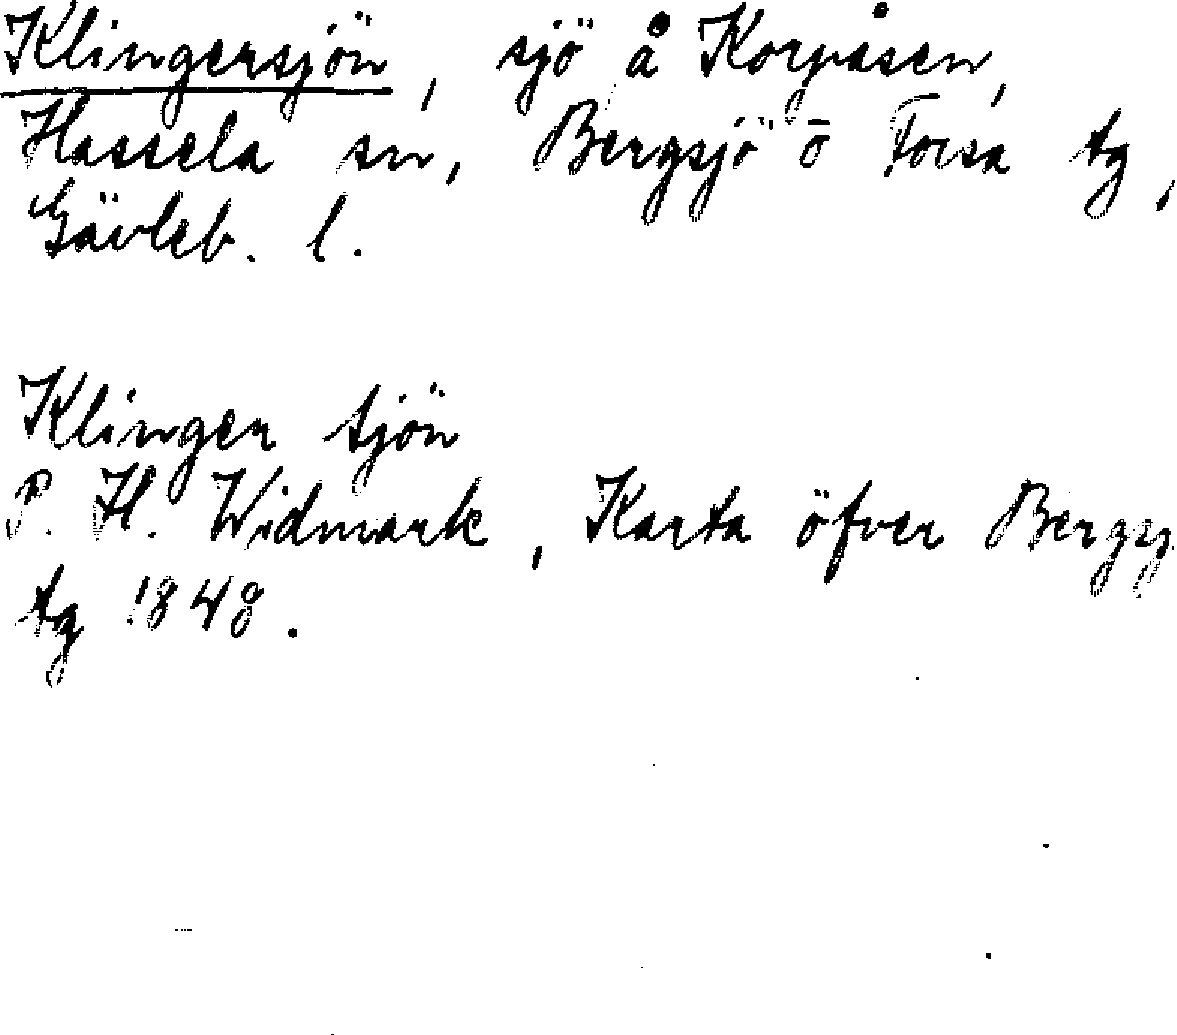 Klingersjön, sjö å Korpåsen,
Hassela sn, Bergsjö o Forsa tg,
Gävleb. l.
Klinger sjön
P. H. Widmark, Karta öfver Bergsj.
tg 1848.